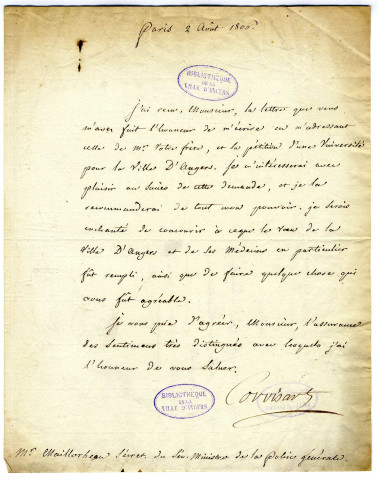 Paris 2 Août 180
BIBLIOTHEQUE
DE LA
VILLE D'ANGERS
j'ai reçu, Monsieur, la lettre que vous
m'avez fait l'honneur de m'écrire en m'adressant
celle de Mr. votre frère, et la pétition d'une Université
pour la Ville D'Angers. Je m'intéresserai avec
plaisir au succès de cette demande, et je la
recommanderai de tout mon pouvoir. je serois
enchanté de concourir à ceque le vœu de la
Ville D'Angers et de ses Médecins en particulier
fût rempli, ainsi que de faire quelque chose qui
vous fût agréable.
je vous prie d'agréer, Monsieur, l'assurance
des sentimens très distingués avec lesquels j'ai
l'honneur de vous saluer.
Corvisart
BIBLIOTHEQUE
DE LA
VILLE D'ANGERS
Mr. Maillocheau Secrét. du Sén. Ministre de la police générale.